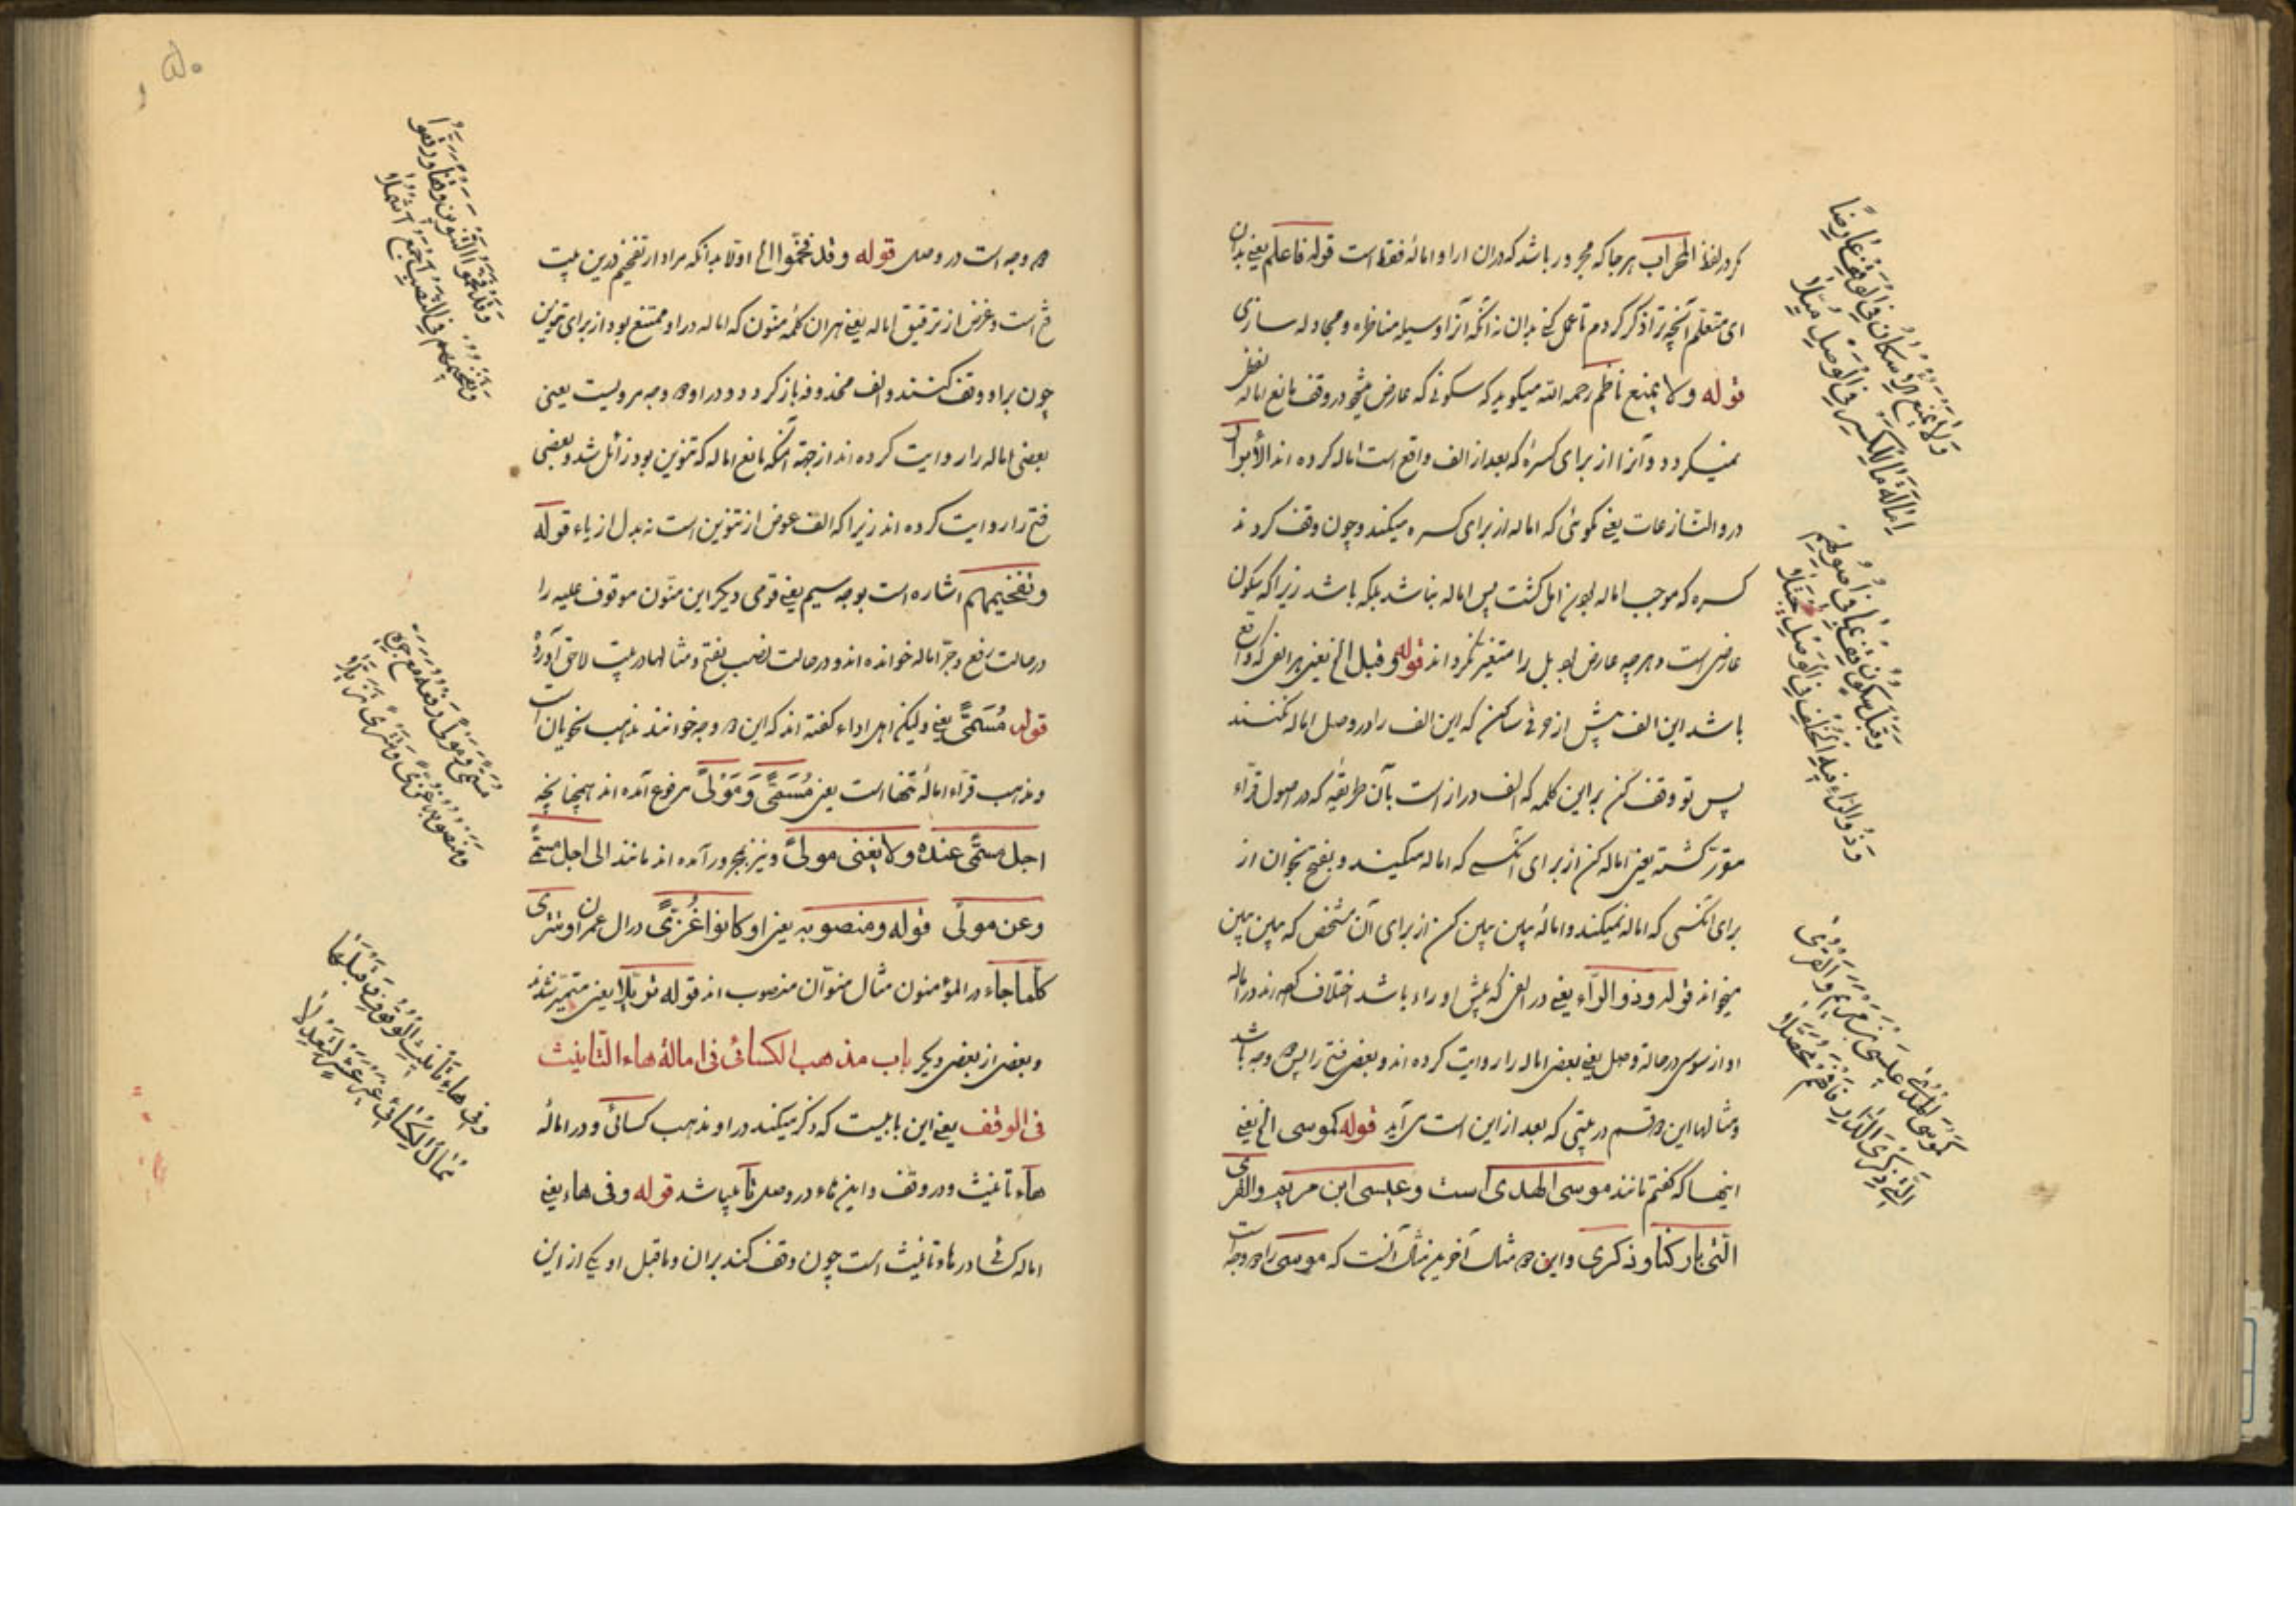 کرد در لفظ المحراب هر جا که مجرور باشد که در ان او را اماله فقط است قوله فاعلم یعنی بدان
ای متعلم آنچه ترا ذکر کردم تا عمل کنی بدان نه آنکه آنرا وسیله مناظره و مجادله سازی
قوله ولا یمنع ناظم رحمه الله میکوید که سکونی که عارض میشود در وقف مانع اماله لفظ
نمیکردد و آنرا از برای کسرهٔ که بعد از الف واقع است اماله کرده اند الأبرار
در والنازعات یعنی نکوئی که اماله از برای کسره میکند و چون وقف کردند
کسره که موجب اماله بود زایل کشت پس اماله نباشد بلکه باشد زیرا که سکون
عارضی است و هر چه عارض بود اصل را متغیر نکرداند قوله وقبل الخ یعنی هر الفی که واقع
باشد این الف پیش از حرفی ساکن که این الف را در وصل اماله نکنند
پس تو وقف کن بر این کلمه که الف در از است بآن طریقه که در اصول قراء
مقرر کشته یعنی اماله کن از برای انکسی که اماله میکند و بفتح بخوان از
برای انکسی که اماله نمیکند و امالهٔ بین بین کن از برای آن شخص که بین بین
میخواند قوله وذو الراء یعنی در الفی که پیش او راء باشد اختلاف کرده اند در اماله
او از سوسی در حالة وصل یعنی بعضی اماله را روایت کرده اند و بعضی فتح را پس دو وجه باشد
و مثالها این دو قسم در بیتی که بعد از این است می آید قوله کموسی الخ یعنی
اینها که کفتم مانند موسی الهدی است و عیسی ابن مریم والقری
التی بارکنا و ذکری و این دو مثال آخرین مثال آنست که سوسی را دو وجه است
وَلَا يَمْنَعُ الْإِسْكَانُ فِي الْوَقْفِ عَارِضًا
إِمَالَةَ مَا لِلْكَسْرِ فِي الْوَصْلِ مُيِّلَا
وَقَبْلَ سُكُونٍ قِفْ بِمَا فِي أُصُولِهِمْ
وَذُو الرَّاءِ فِيهِ الْخُلْفُ فِي الْوَصْلِ يُجْتَلَا
كَمُوسَى الْهُدَى عِيسَى بْنِ مَرْيَمَ وَالْقُرَى
الَّتِي مَعَ ذِكْرَى الدَّارِ فَافْهَمْ مُحَصِّلَا
۵۰
دو وجه است در وصل قوله وقد فخموا الخ اولا بدانکه مراد از تفخیم درین بیت
فتح است و غرض از ترقیق اماله یعنی هر ان کلمهٔ منون که اماله در او ممتنع بود از برای تنوین
چون بر او وقف کنند و الف محذوفه باز کردد و در او دو وجه مرویست یعنی
بعضی اماله را روایت کرده اند از جهة آنکه مانع اماله که تنوین بود زائل شد و بعضی
فتح را روایت کرده اند زیرا که الف عوض از تنوین است نه بدل از یاء قوله
وتفخیمهم اشاره است بوجه سیم یعنی قومی دیکر این منون موقوف علیه را
در حالت رفع و جر اماله خوانده اند و در حالت نصب بفتح و مثالها در بیت لاحق آورده
قوله مُسَمًّى یعنی ولیکن اهل اداء کفته اند که این دو وجه خوانند مذهب نحویان است
و مذهب قراء امالهٔ تنها است یعنی مُسَمًّى وَمَوْلًى مرفوع آمده اند همچنانچه
اجل مسمّى عنده ولا یغنی مولى و نیز مجرور آمده اند مانند الی اجل مسمى
وعن مولى قوله ومنصوبه یعنی او کانوا غُزًّى در ال عمران و تترى
کلما جاء در المؤمنون مثال منون منصوب اند قوله تزیلا یعنی متمیز شدند
و بعضی از بعضی دیکر باب مذهب الکسائی فی امالة هاء التانیث
فی الوقف یعنی این بابیست که ذکر میکند در او مذهب کسائی و در امالهٔ
هاء تانیث و در وقف و این هاء در وصل تا میباشد قوله وفی هاء یعنی
اماله کسائی در هاء تانیث است چون وقف کند بران و ماقبل او یکی از این
وَقَدْ فَخَّمُوا التَّنْوِينَ وَقْفًا وَرَقَّقُوا
وَتَفْخِيمُهُمْ فِي النَّصْبِ أَجْمَعُ أَشْمُلَا
مُسَمًّى وَمَوْلًى رَفْعُهُ مَعَ جَرِّهِ
وَمَنْصُوبُهُ غُزًّى وَتَتْرَى تَزَيَّلَا
وَفِي هَاءِ تَأْنِيثِ الْوُقُوفِ وَمَا قَبْلَهَا
مُمَالُ الْكِسَائِيِّ غَيْرَ عَشْرٍ لِيَعْدِلَا